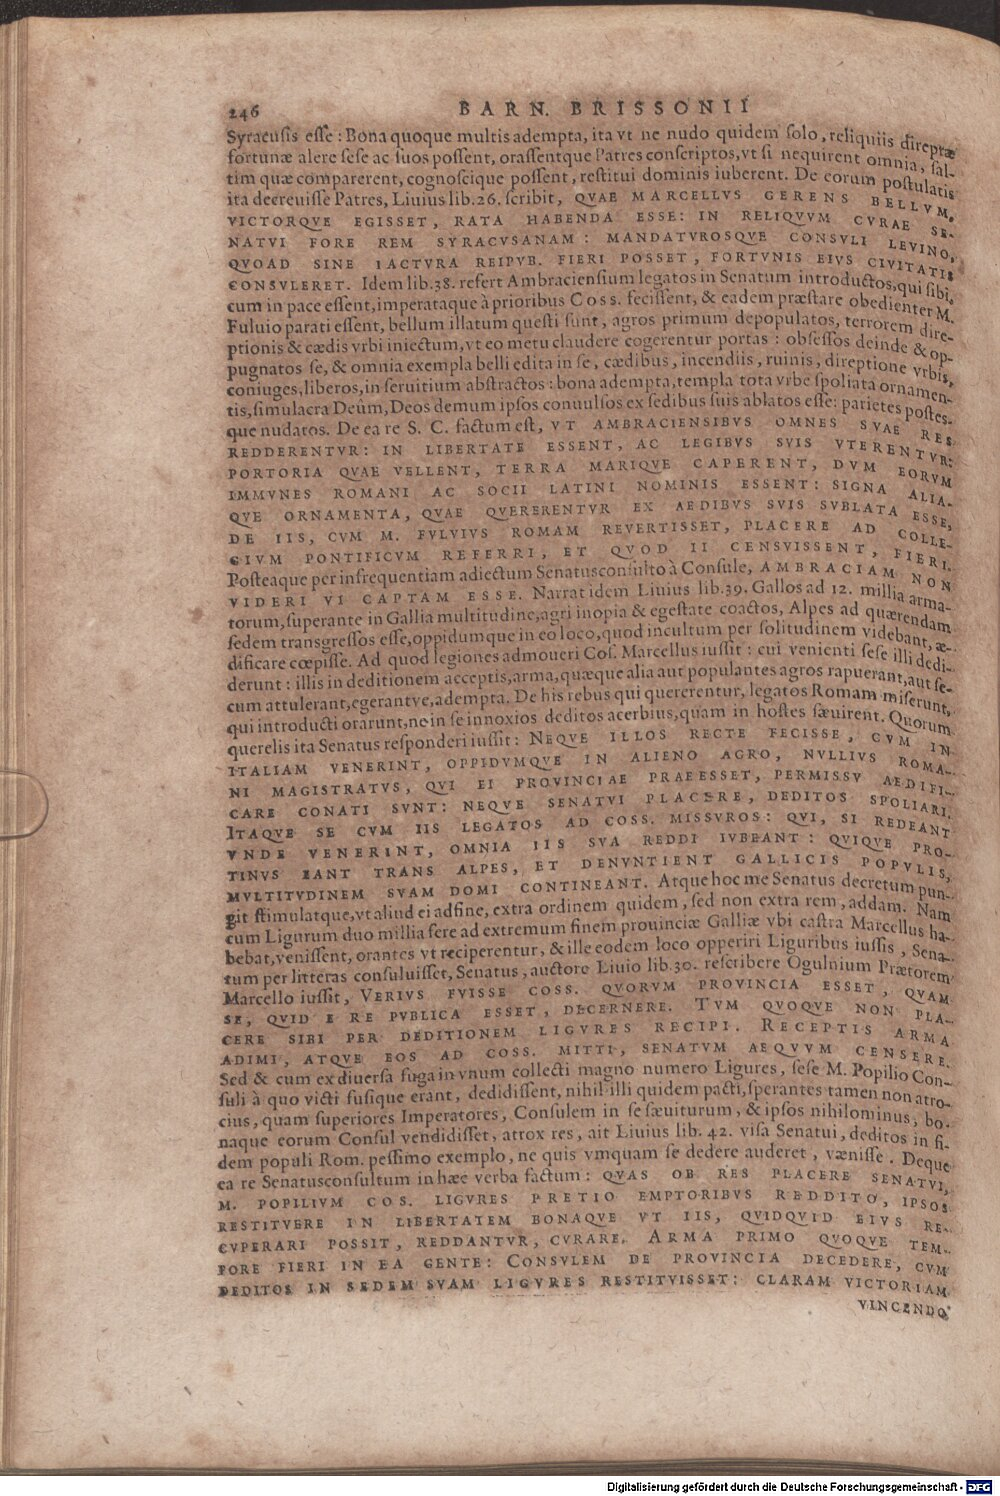 246 BARN. BRISSONII
Syracusis esse : Bona quoque multis adempta, ita vt ne nudo quidem solo, reliquiis direptæ
fortunæ alere sese ac suos possent, orassentque Patres conscriptos, vt si nequirent omnia, sal-
tim quæ comparerent, cognoscique possent, restitui dominis iuberent. De eorum postulatis
ita decreuisse Patres, Liuius lib.26. scribit, QVAE MARCELLVS GERENS BELLVM,
VICTORQVE EGISSET, RATA HABENDA ESSE: IN RELIQVVM CVRAE SE-
NATVI FORE REM SYRACVSANAM : MANDATVROSQVE CONSVLI LEVINO,
QVOAD SINE IACTVRA REIPVB. FIERI POSSET, FORTVNIS EIVS CIVITATIS
CONSVLERET. Idem lib.38. refert Ambraciensium legatos in Senatum introductos, qui sibi,
cum in pace essent, imperataque à prioribus Coss. fecissent, & eadem præstare obedienter M.
Fuluio parati essent, bellum illatum questi sunt, agros primum depopulatos, terrorem dire-
ptionis & cædis vrbi iniectum, vt eo metu claudere cogerentur portas : obsessos deinde & op-
pugnatos se, & omnia exempla belli edita in se, cædibus, incendiis, ruinis, direptione vrbis,
coniuges, liberos, in seruitium abstractos : bona adempta, templa tota vrbe spoliata ornamen-
tis, simulacra Deûm, Deos demum ipsos conuulsos ex sedibus suis ablatos esse: parietes postes-
que nudatos. De ea re S. C. factum est, VT AMBRACIENSIBVS OMNES SVAE RES
REDDERENTVR: IN LIBERTATE ESSENT, AC LEGIBVS SVIS VTERENTVR:
PORTORIA QVAE VELLENT, TERRA MARIQVE CAPERENT, DVM EORVM
IMMVNES ROMANI AC SOCII LATINI NOMINIS ESSENT: SIGNA ALIA-
QVE ORNAMENTA, QVAE QVERERENTVR EX AEDIBVS SVIS SVBLATA ESSE,
DE IIS, CVM M. FVLVIVS ROMAM REVERTISSET, PLACERE AD COLLE-
GIVM PONTIFICVM REFERRI, ET QVOD II CENSVISSENT, FIERI.
Posteaque per infrequentiam adiectum Senatusconsulto à Consule, AMBRACIAM NON
VIDERI VI CAPTAM ESSE. Narrat idem Liuius lib.39. Gallos ad 12. millia arma-
torum, superante in Gallia multitudine, agri inopia & egestate coactos, Alpes ad quærendam
sedem transgressos esse, oppidumque in eo loco, quod incultum per solitudinem videbant, æ-
dificare cœpisse. Ad quod legiones admoueri Cos. Marcellus iussit : cui venienti sese illi dedi-
derunt : illis in deditionem acceptis, arma, quæque alia aut populantes agros rapuerant, aut se-
cum attulerant, egerantve, adempta. De his rebus qui quererentur, legatos Romam miserunt,
qui introducti orarunt, ne in se innoxios deditos acerbius, quam in hostes sæuirent. Quorum
querelis ita Senatus responderi iussit : NEQVE ILLOS RECTE FECISSE, CVM IN
ITALIAM VENERINT, OPPIDVMQVE IN ALIENO AGRO, NVLLIVS ROMA-
NI MAGISTRATVS, QVI EI PROVINCIAE PRAEESSET, PERMISSV AEDIFI-
CARE CONATI SVNT: NEQVE SENATVI PLACERE, DEDITOS SPOLIARI.
ITAQVE SE CVM IIS LEGATOS AD COSS. MISSVROS: QVI, SI REDEANT
VNDE VENERINT, OMNIA IIS SVA REDDI IVBEANT : QVIQVE PRO-
TINVS EANT TRANS ALPES, ET DENVNTIENT GALLICIS POPVLIS,
MVLTITVDINEM SVAM DOMI CONTINEANT. Atque hoc me Senatus decretum pun-
git stimulatque, vt aliud ei adfine, extra ordinem quidem, sed non extra rem, addam. Nam
cum Ligurum duo millia fere ad extremum finem prouinciæ Galliæ vbi castra Marcellus ha-
bebat, venissent, orantes vt reciperentur, & ille eodem loco opperiri Liguribus iussis, Sena-
tum per litteras consuluisset, Senatus, auctore Liuio lib.30. rescribere Ogulnium Prætorem
Marcello iussit, VERIVS FVISSE COSS. QVORVM PROVINCIA ESSET, QVAM
SE, QVID E RE PVBLICA ESSET, DECERNERE. TVM QVOQVE NON PLA-
CERE SIBI PER DEDITIONEM LIGVRES RECIPI. RECEPTIS ARMA
ADIMI, ATQVE EOS AD COSS. MITTI, SENATVM AEQVVM CENSERE.
Sed & cum ex diuersa fuga in vnum collecti magno numero Ligures, sese M. Popilio Con-
suli à quo victi fusique erant, dedidissent, nihil illi quidem pacti, sperantes tamen non atro-
cius, quam superiores Imperatores, Consulem in se sæuiturum, & ipsos nihilominus, bo-
naque eorum Consul vendidisset, atrox res, ait Liuius lib. 42. visa Senatui, deditos in fi-
dem populi Rom. pessimo exemplo, ne quis vmquam se dedere auderet, vænisse. Deque
ea re Senatusconsultum in hæc verba factum : QVAS OB RES PLACERE SENATVI,
M. POPILIVM COS. LIGVRES PRETIO EMPTORIBVS REDDITO, IPSOS
RESTITVERE IN LIBERTATEM BONAQVE VT IIS, QVIDQVID EIVS RE-
CVPERARI POSSIT, REDDANTVR, CVRARE. ARMA PRIMO QVOQVE TEM-
PORE FIERI IN EA GENTE: CONSVLEM DE PROVINCIA DECEDERE, CVM
DEDITOS IN SEDEM SVAM LIGVRES RESTITVISSET: CLARAM VICTORIAM
VINCENDO
Digitalisierung gefördert durch die Deutsche Forschungsgemeinschaft - DFG